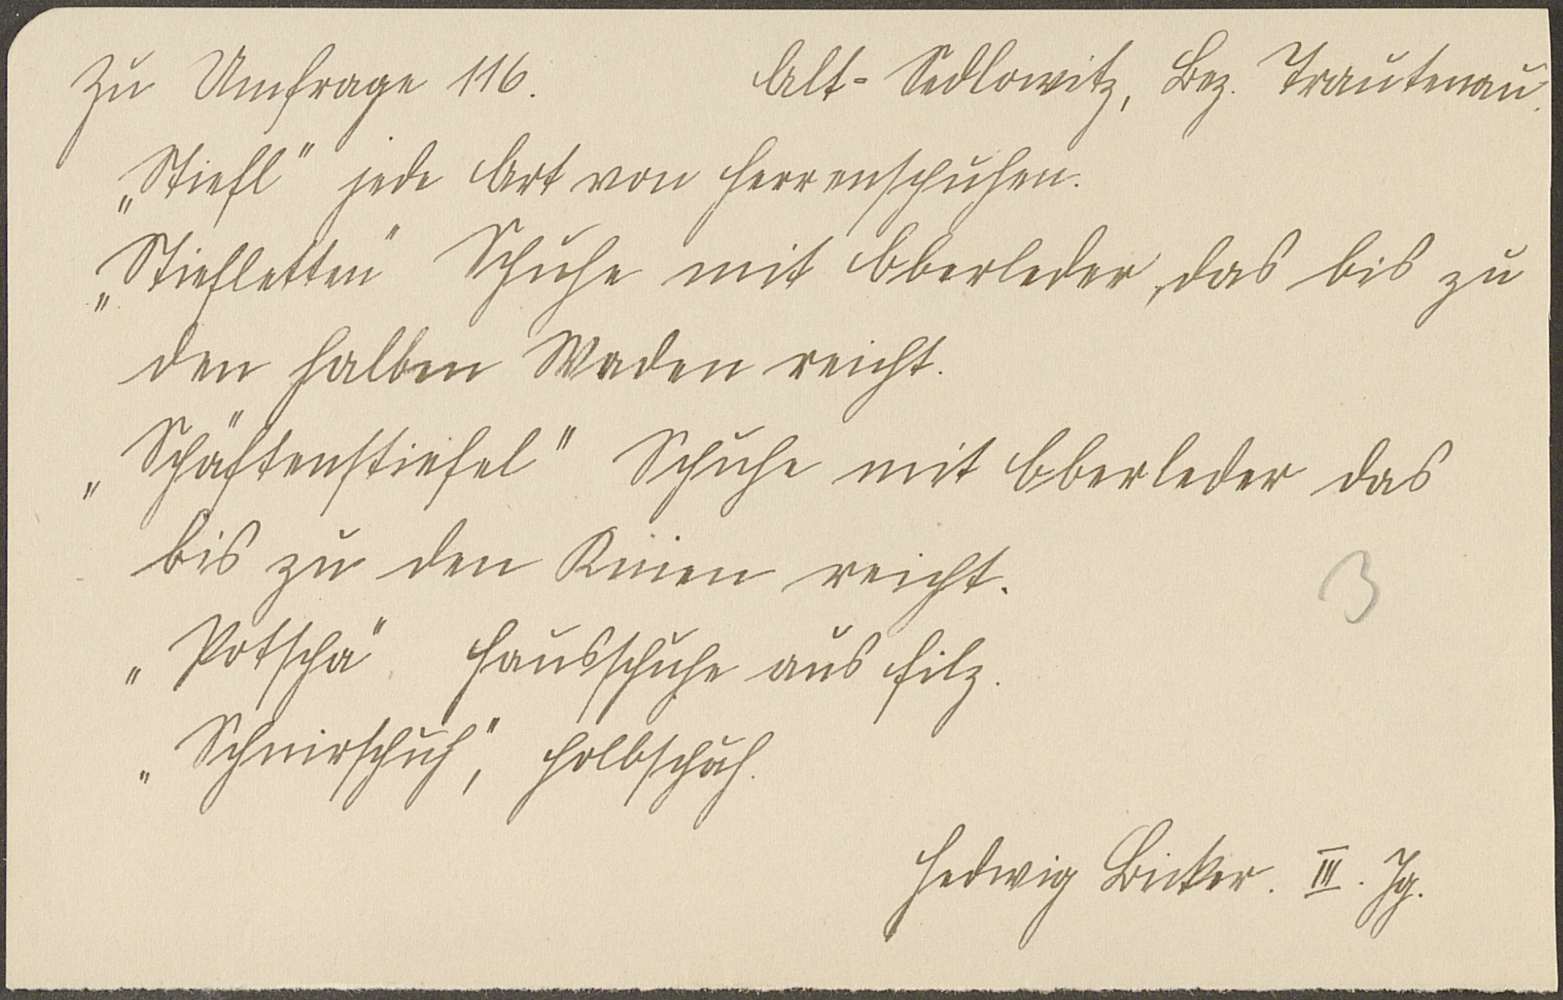 Zu Umfrage 116. Alt-Sedlowitz, Bez. Trautenau.
„Stiefl" jede Art von Herrenschuhen.
„Stiefletten" Schuhe mit Oberleder, das bis zu
den halben Waden reicht.
„Schäftenstiefel" Schuhe mit Oberleder das
bis zu den Knien reicht.
3
„Potscha" Hausschuhe aus Filz.
„Schnirschuh", Holbschuh.
Hedwig Bicker. III. Jg.